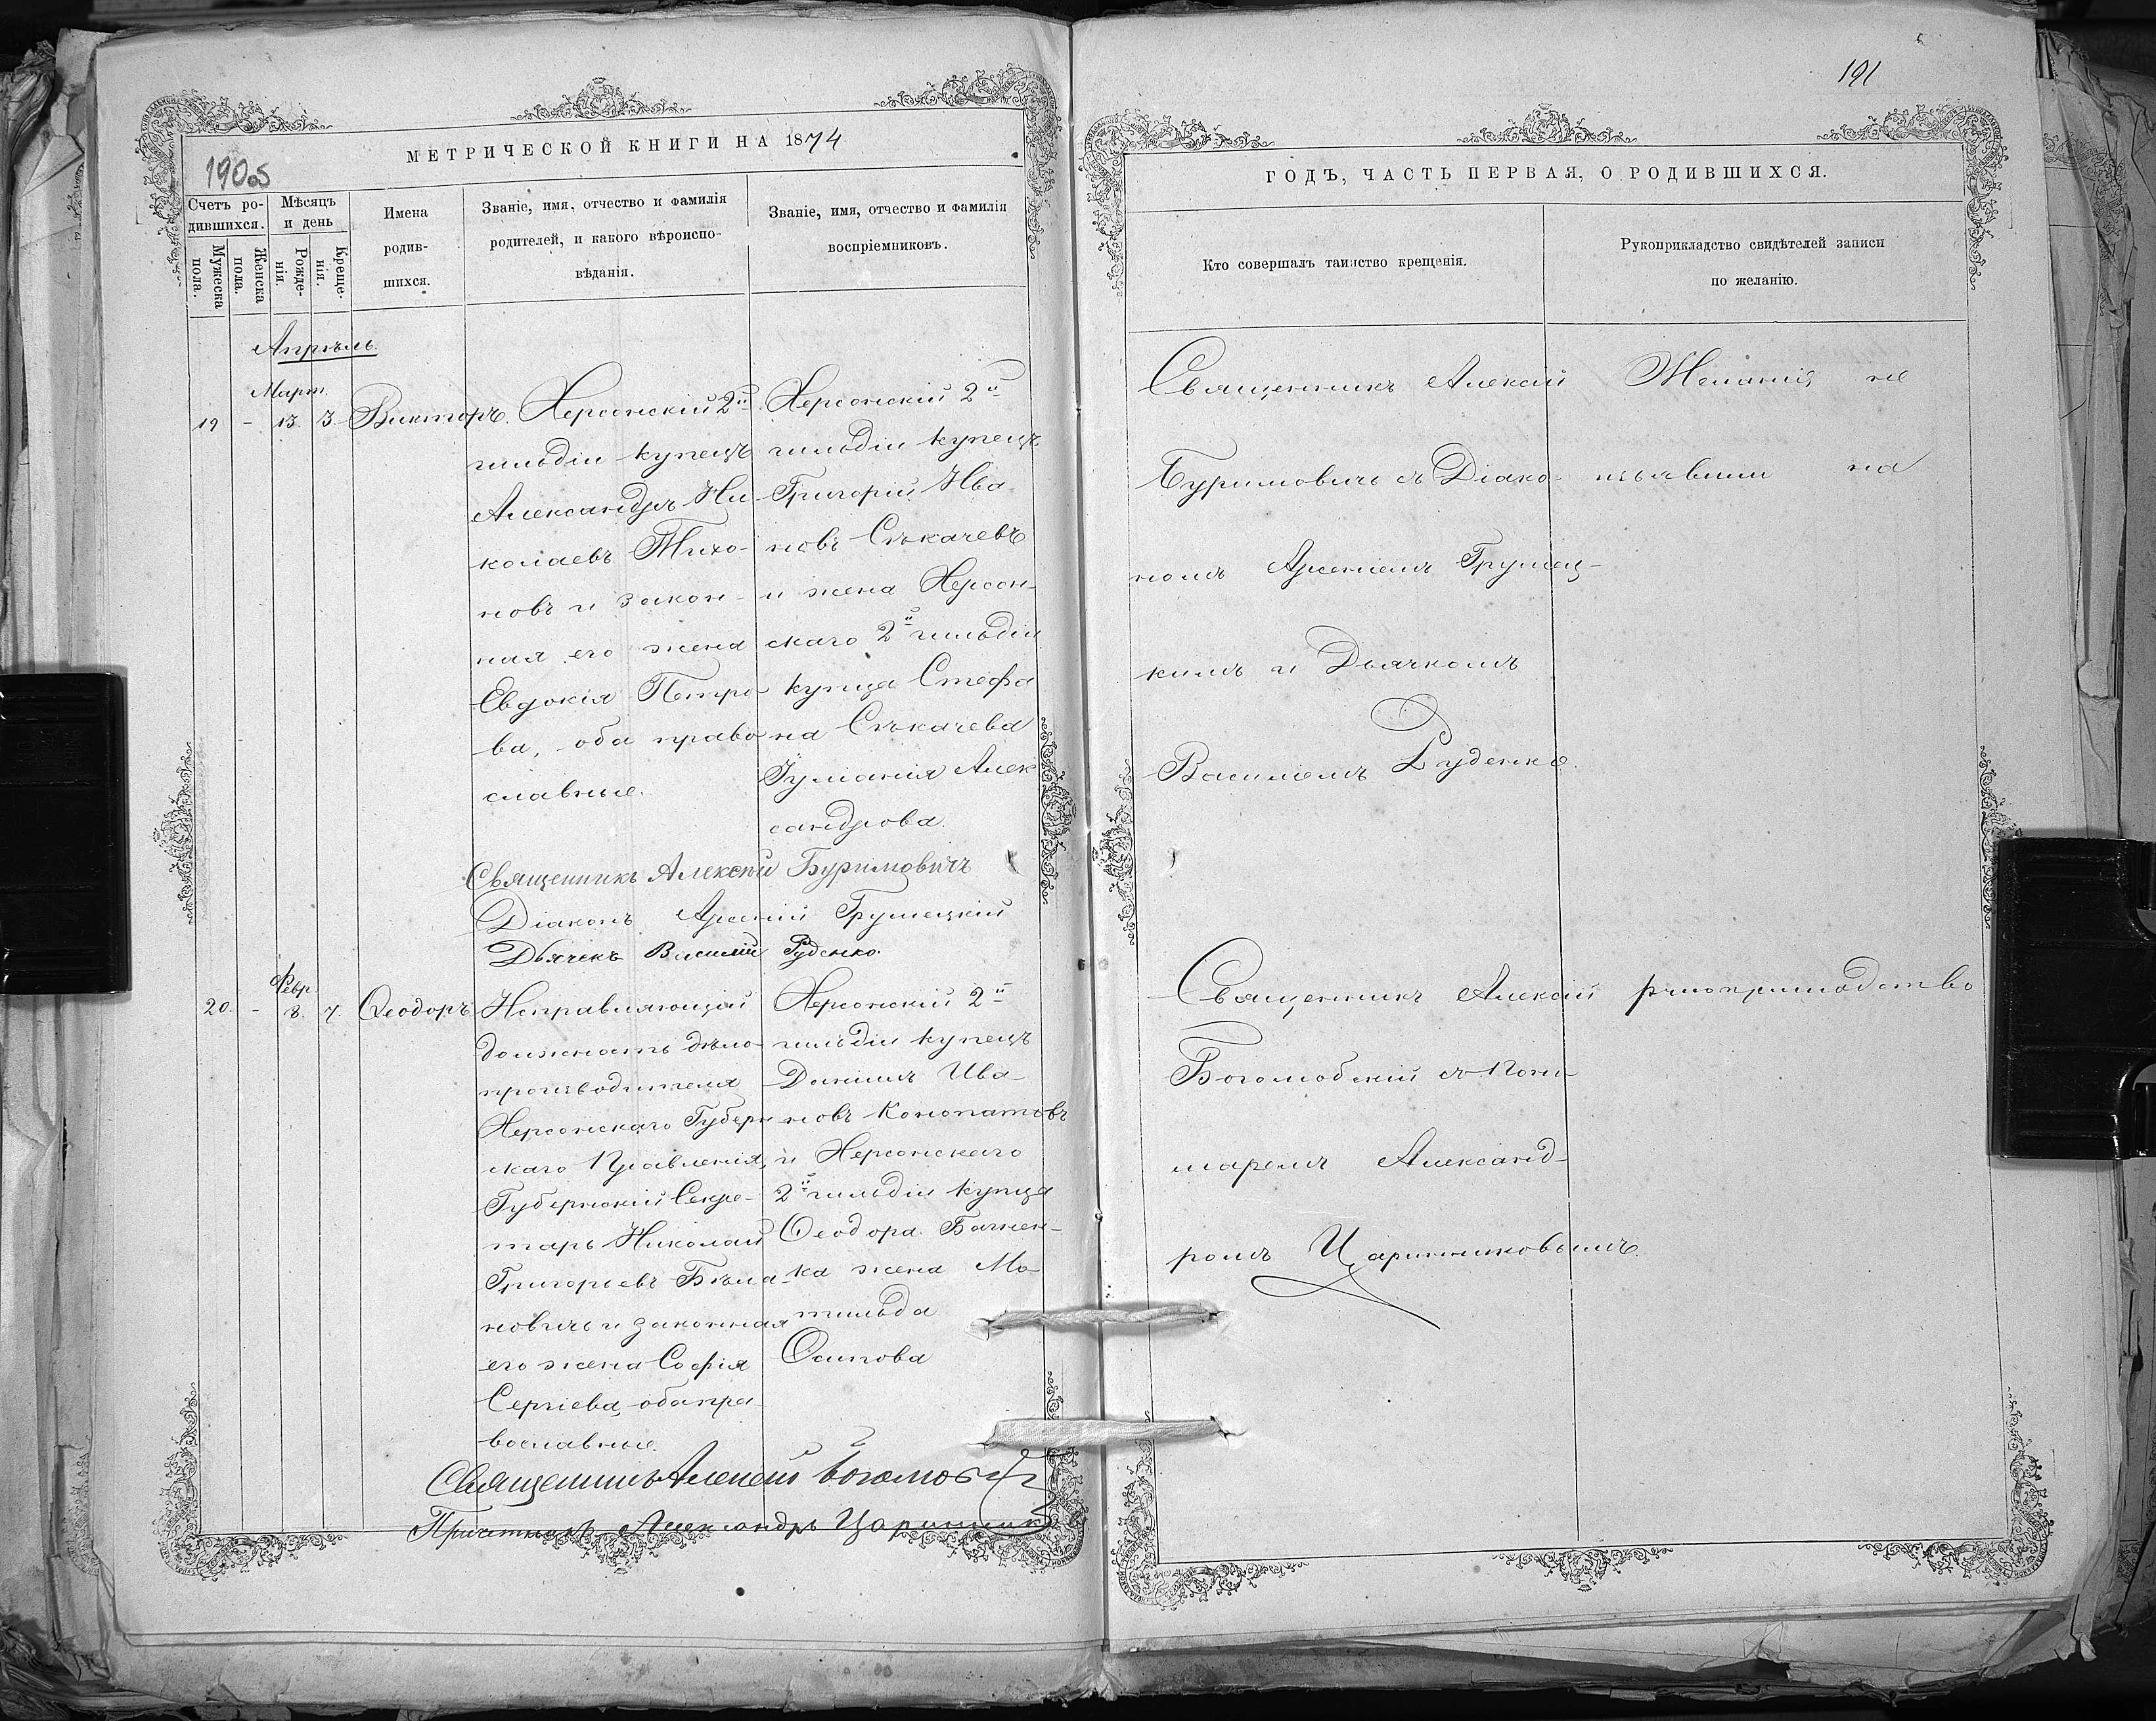 191
МЕТРИЧЕСКОЙ КНИГИ НА 1874
190об
Счетъ ро-
дившихся.
Мужеска
пола.
Женска
пола.
Мѣсяцъ
и день
Рожде-
нія.
Креще-
нія.
Имена
родив-
шихся.
Званіе, имя, отчество и фамилія
родителей, и какого вѣроиспо-
вѣданія.
Званіе, имя, отчество и фамилія
воспріемниковъ.
Апрѣль
Март.
19 - 13. 3. Викторъ.
Херсонскій 2й
гильдіи купецъ
Александръ Ни-
колаевъ Тихо-
новъ и закон-
ная его жена
Евдокія Петро-
ва, оба право
славные.
Херсонскій 2й
гильдіи купецъ
Григорій Ива
новъ Сѣкачевъ
и жена Херсон-
скаго 2й гильдіи
купца Стефа
на Сѣкачева
Іуліанія Алек
сандрова.
Священникъ Алексѣй Буримовичъ
Діаконъ Арсеній Грушецкій
Дьячекъ Василій Руденко.
Февр
20. - 8. 7. Ѳеодоръ
Исправляющій
должность дѣло-
производителя
Херсонскаго Губерн
скаго Правленія,
Губернскій Секре-
тарь Николай
Григорьевъ Бѣла-
новичъ и законная
его жена Софія
Сергіева, оба пра-
вославные.
Херсонскій 2й
гильдіи купецъ
Даніилъ Ива-
новъ Конопатовъ
и Херсонскаго
2й гильдіи купца
Ѳеодора
ка жена Ма-
тильда
Осипова
Священникъ Алексѣй
Причетникъ Александръ
ГОДЪ, ЧАСТЬ ПЕРВАЯ, О РОДИВШИХСЯ.
Кто совершалъ таинство крещенія.
Рукоприкладство свидѣтелей записи
по желанію.
Священникъ Алексій
Буримовичъ съ Діако-
номъ Арсеніемъ Грушец-
кимъ и Дьячкомъ
Василіемъ Руденко.
Желанія не
изъявили на
Священникъ Алексій
Боголюбскій съ Поно-
маремъ Александ-
ромъ Царинниковымъ.
рукоприкладство